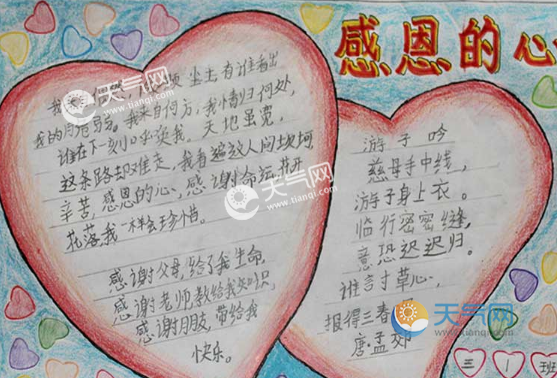 感恩的心
我来
尘土有谁看出
我的脆弱。我来自何方，我情归何处，
谁在下一刻呼唤我。天地虽宽，
这条路却难走，我看遍这人间坎坷
辛苦，感恩的心，感谢命运，花开
花落我一样会珍惜。
感谢父母，给了我生命，
感谢老师，教给我知识，
感谢朋友，带给我
快乐。
游子吟
慈母手中线，
游子身上衣。
临行密密缝，
意恐迟迟归。
谁言寸草心，
报得三春
唐·孟郊
三 1 班
天气网
www.tianqi.com
天气网
www.tianqi.com
天气网
www.tianqi.com